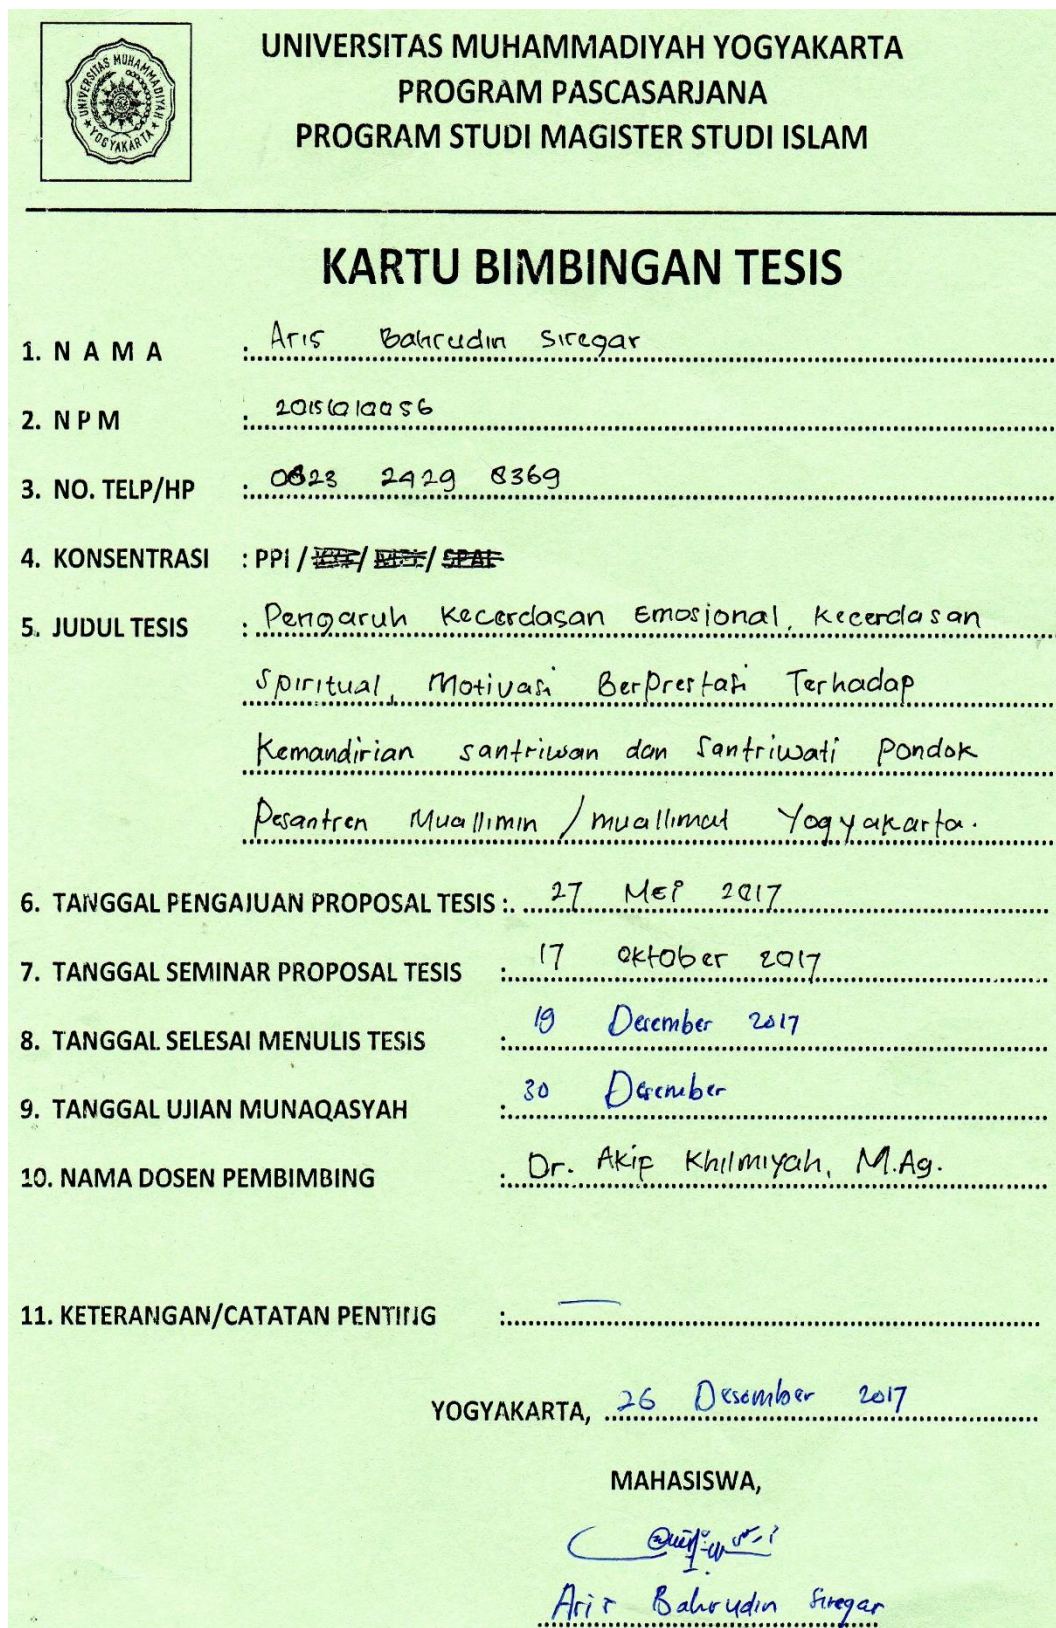 UNIVERSITAS MUHAMMADIYAH YOGYAKARTA
UNIVERSITAS MUHAMMADIYAH YOGYAKARTA
PROGRAM PASCASARJANA
PROGRAM STUDI MAGISTER STUDI ISLAM
KARTU BIMBINGAN TESIS
1. N A M A : Aris Bahrudin Siregar
2. N P M : 20156010056
3. NO. TELP/HP : 0823 2429 8369
4. KONSENTRASI : PPI / / /
5. JUDUL TESIS : Pengaruh Kecerdasan Emosional, Kecerdasan
Spiritual, Motivasi Berprestasi Terhadap
Kemandirian santriwan dan Santriwati Pondok
Pesantren Muallimin / muallimat Yogyakarta.
6. TANGGAL PENGAJUAN PROPOSAL TESIS : 27 Mei 2017
7. TANGGAL SEMINAR PROPOSAL TESIS : 17 Oktober 2017
8. TANGGAL SELESAI MENULIS TESIS : 19 Desember 2017
9. TANGGAL UJIAN MUNAQASYAH : 30 Desember
10. NAMA DOSEN PEMBIMBING : Dr. Akif Khilmiyah, M.Ag.
11. KETERANGAN/CATATAN PENTING :
YOGYAKARTA, 26 Desember 2017
MAHASISWA,
Aris Bahrudin Siregar